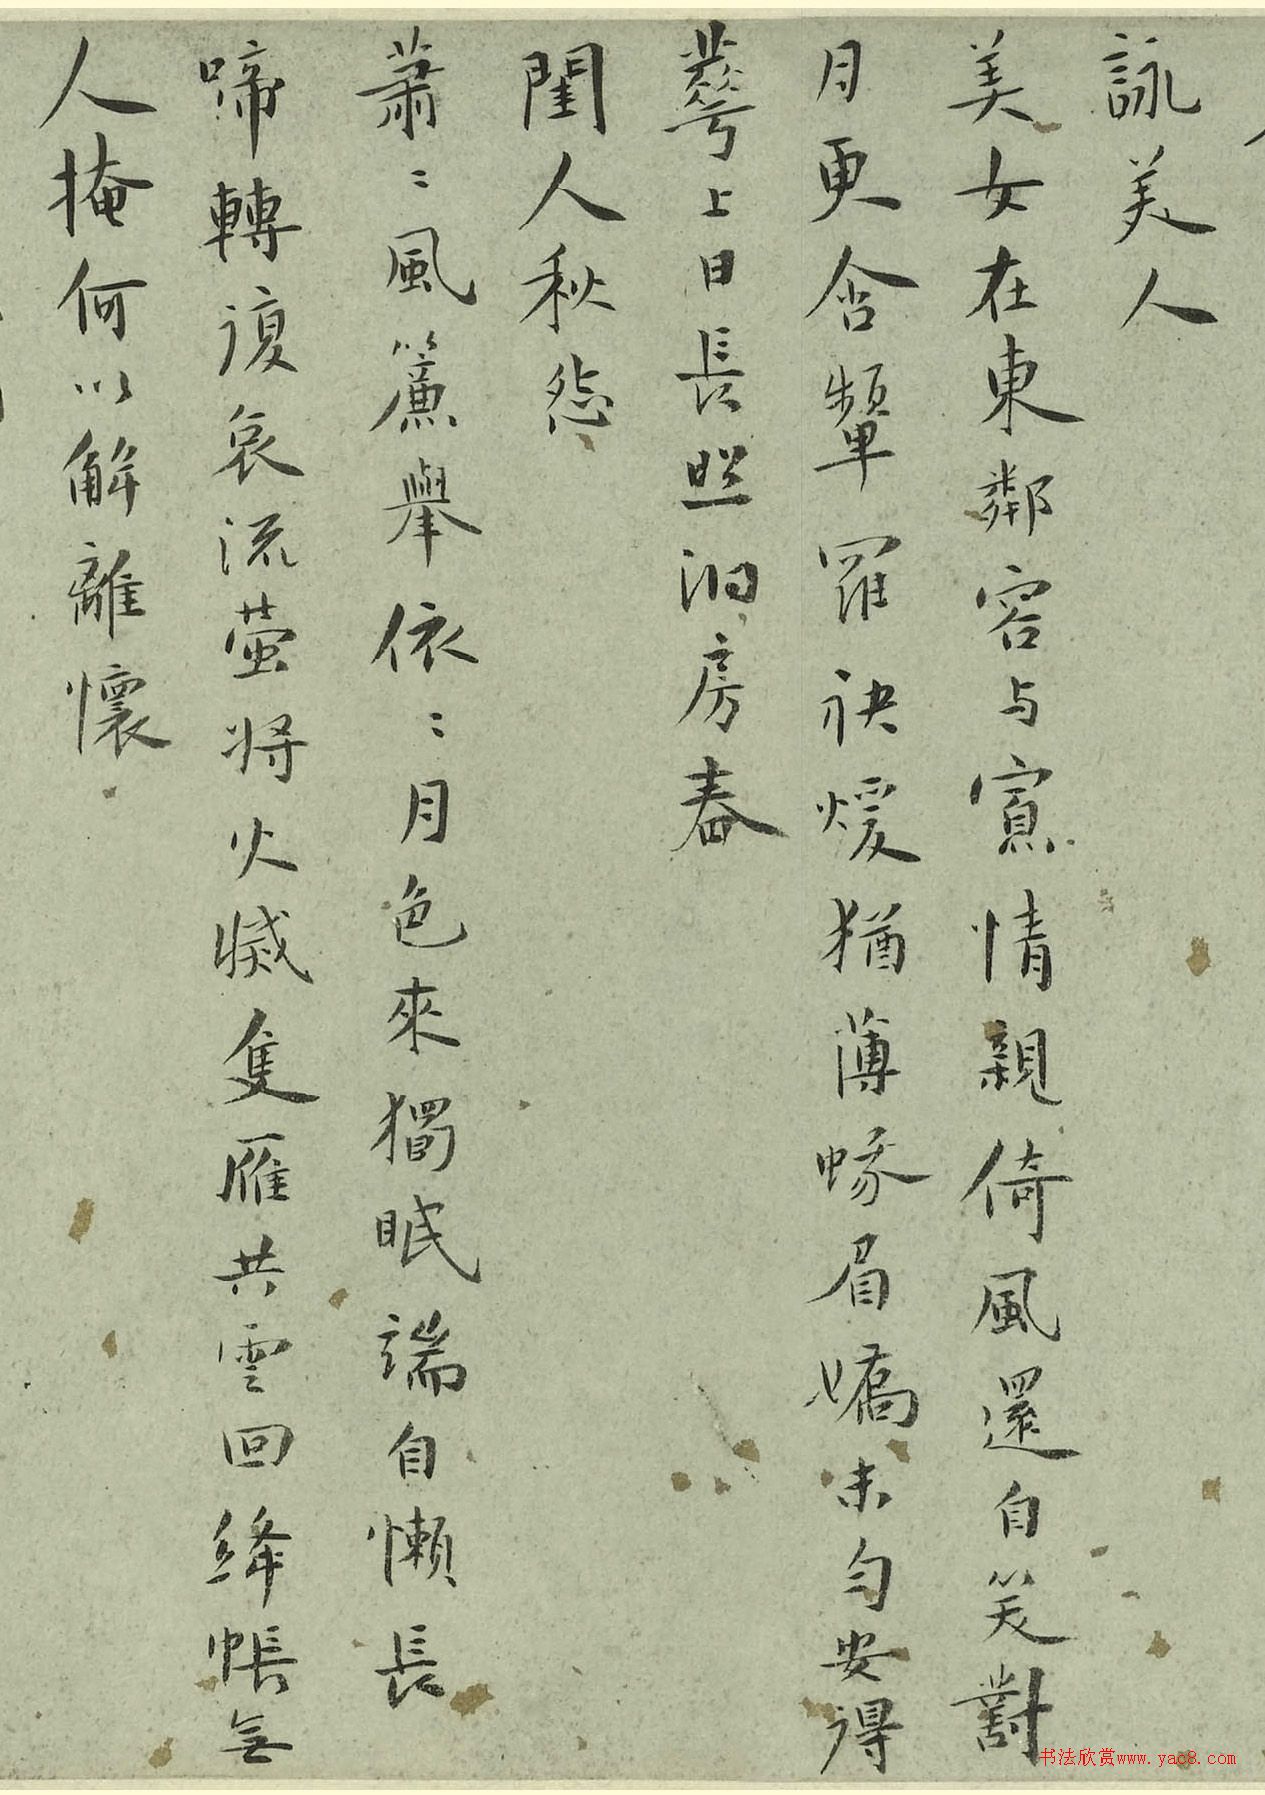 詠美人
美女在東鄰容与實情親倚風還自笑對
月更含顰羅袂煖猶薄蛾眉嬌未勻安得
蕚上日長照洞房春
閨人秋怨
蕭〻風簾舉依〻月色來獨眠端自懶長
啼轉復哀流螢將火滅隻雁共雲回絳帳無
人掩何以解離懷
书法欣赏www.yac8.com